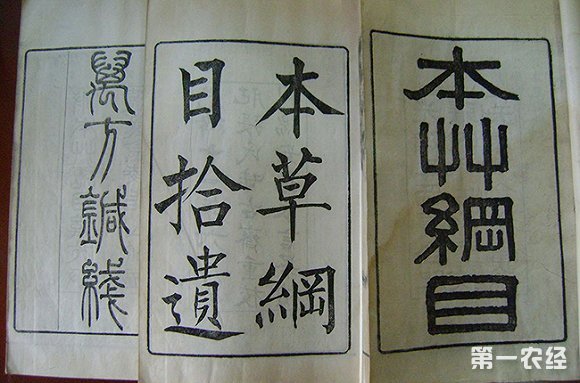 本艸綱目
本草綱
目拾遺
萬方鍼綫
第一农经